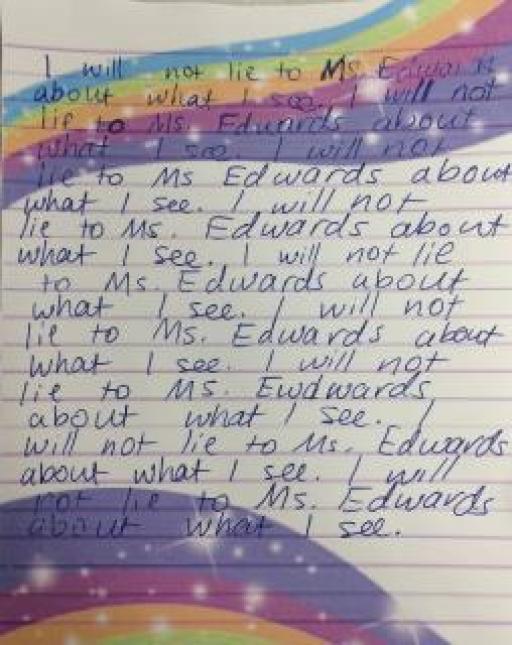 I will not lie to Ms. Edwards
about what I see. I will not
lie to Ms. Edwards about
what I see. I will not
lie to Ms Edwards about
what I see. I will not
lie to Ms. Edwards about
what I see. I will not lie
to Ms. Edwards about
what I see. I will not
lie to Ms. Edwards about
what I see. I will not
lie to Ms. Ewdwards
about what I see. I
will not lie to Ms. Edwards
about what I see. I will
not lie to Ms. Edwards
about what I see.